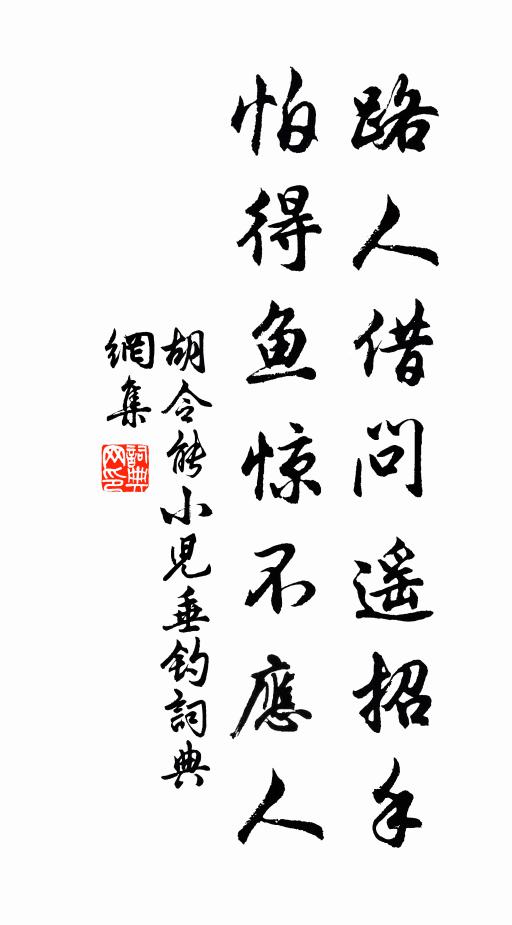 路人借问遥招手
怕得鱼惊不應人
胡令能小児垂钓詞典
網集
詞典网印